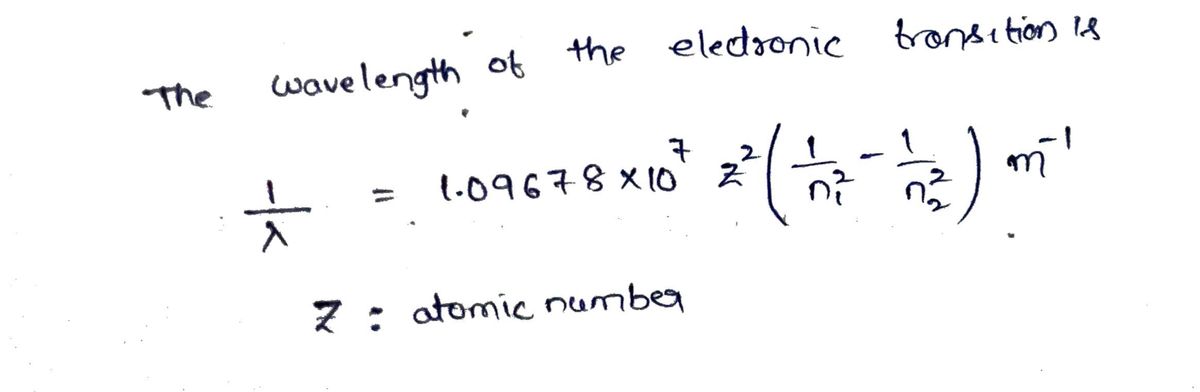 The wavelength of the electronic transition is
1/λ = 1.09678 × 10⁷ z² (1/n₁² - 1/n₂²) m⁻¹
Z : atomic number